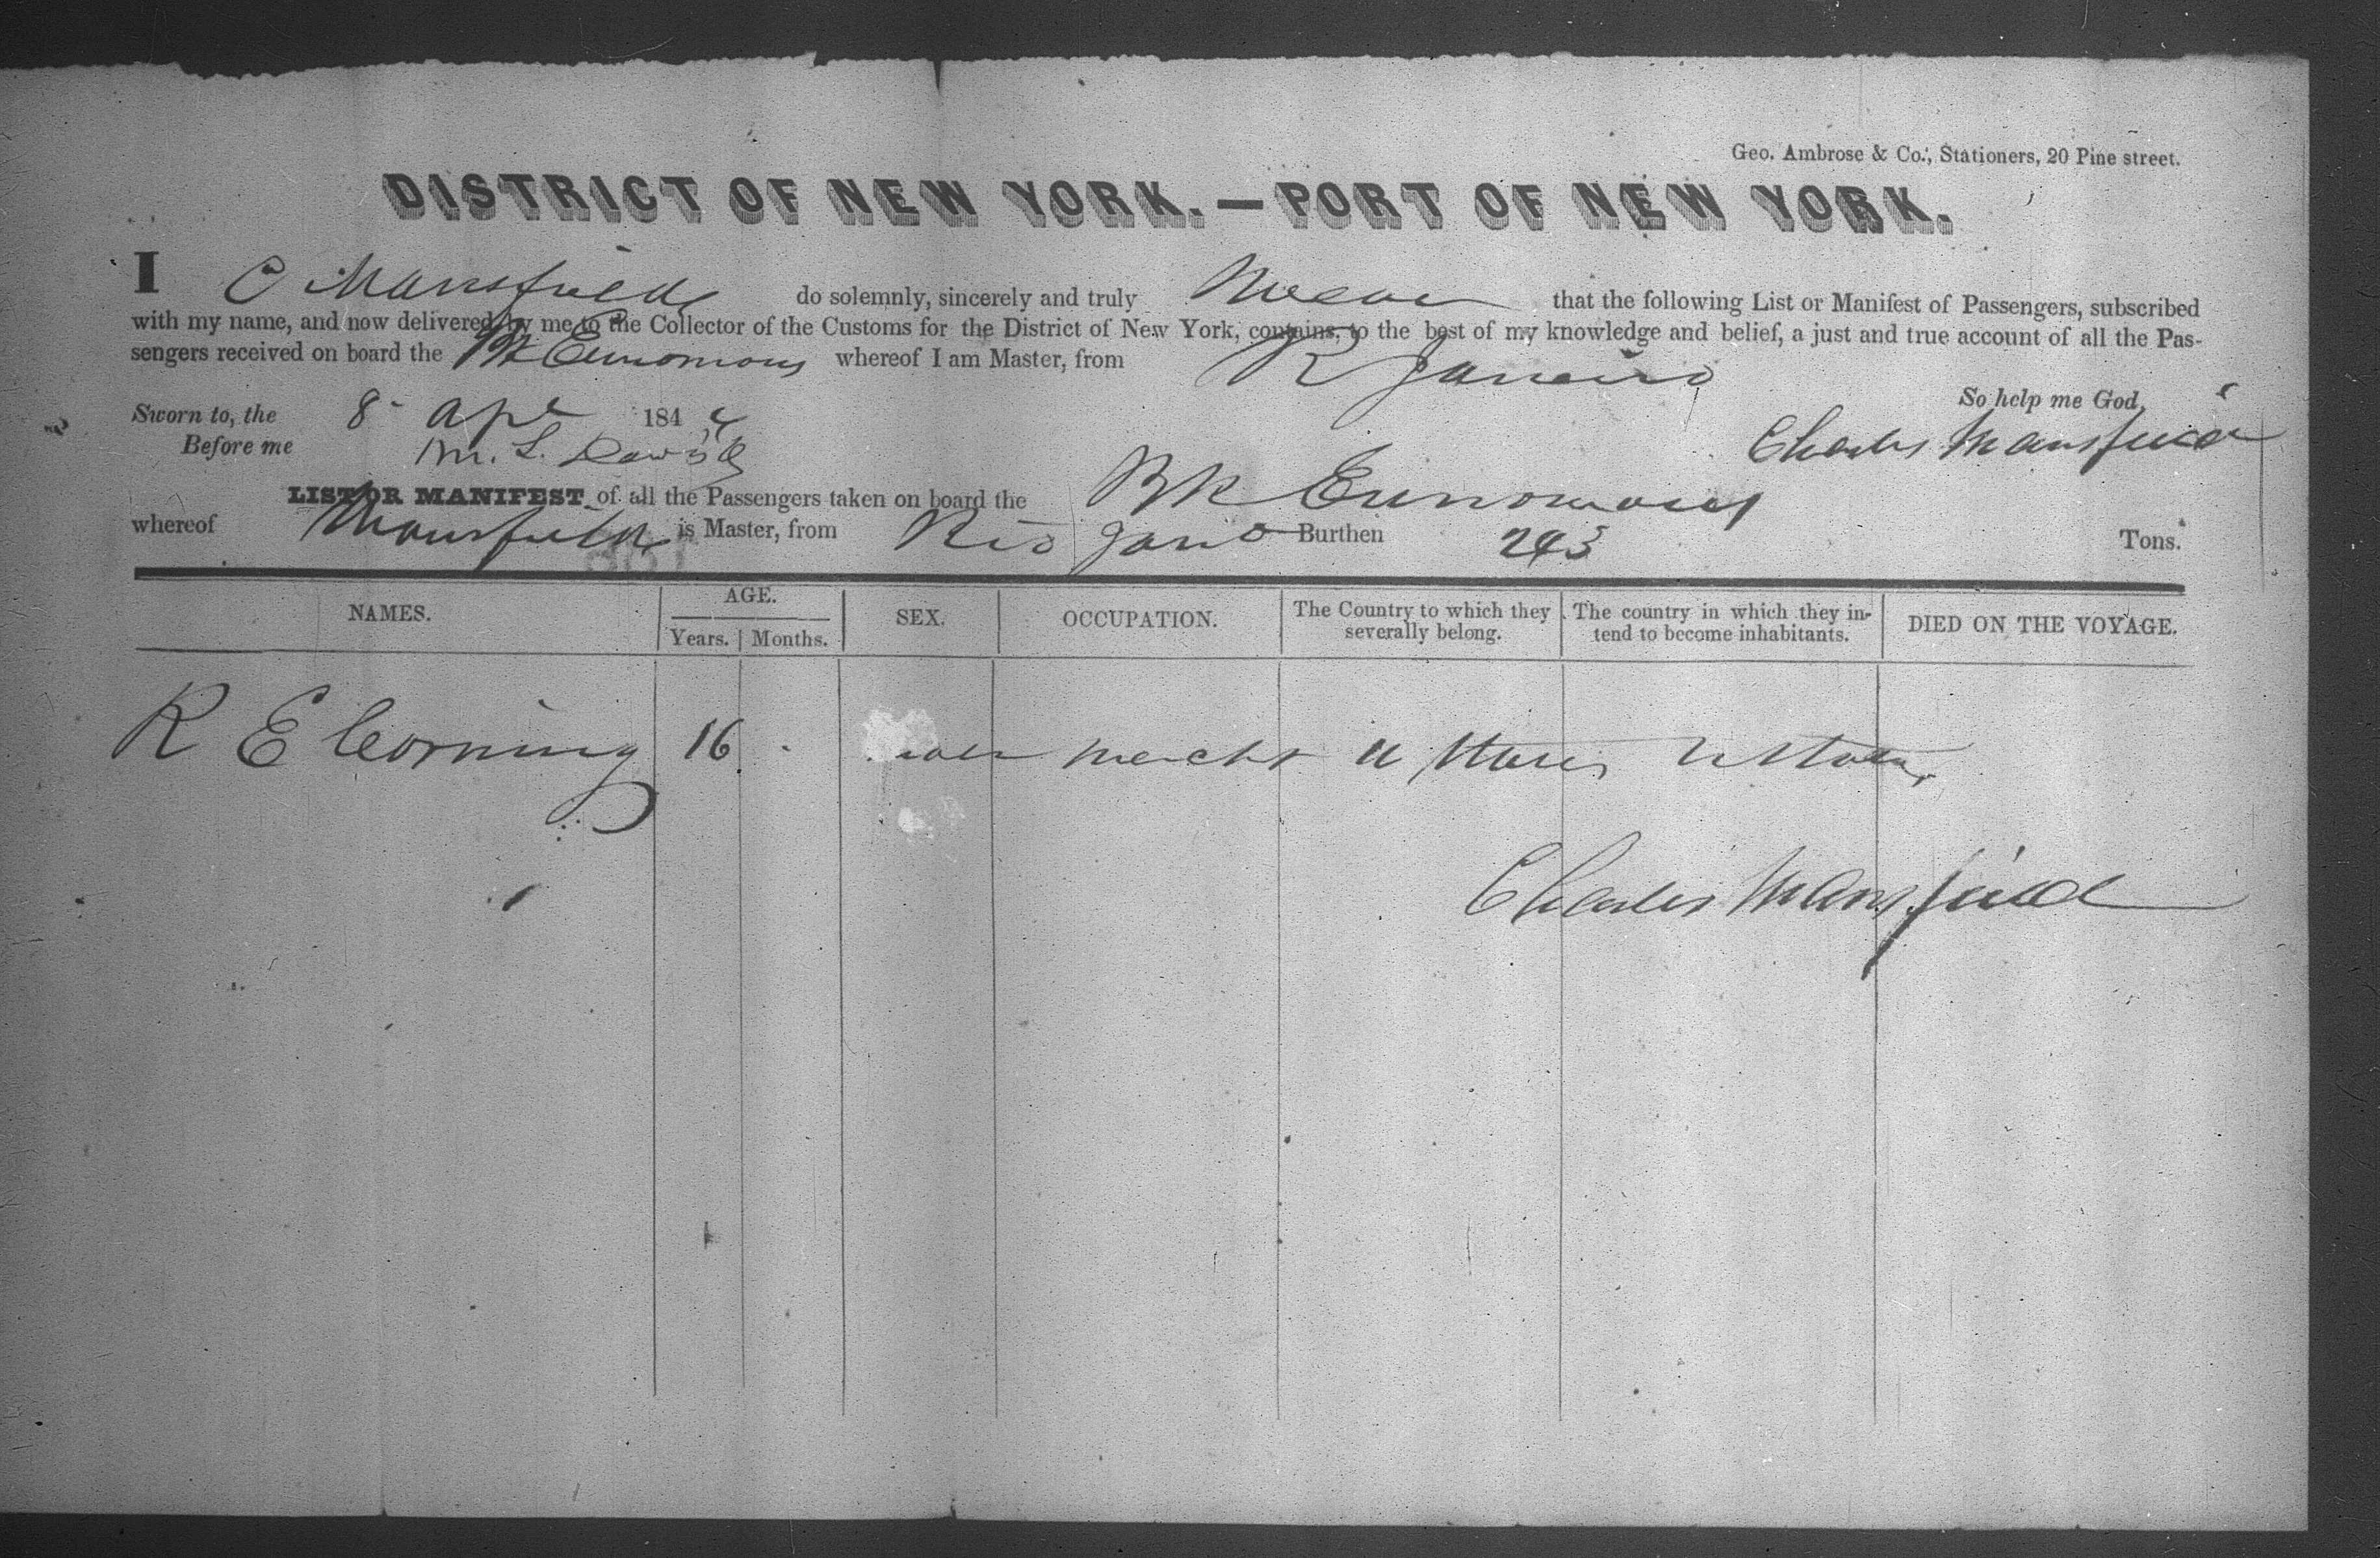 Geo. Ambrose & Co., Stationers, 20 Pine street.
DISTRICT OF NEW YORK.—PORT OF NEW YORK.
I C Mansfield do solemnly, sincerely and truly Swear that the following List or Manifest of Passengers, subscribed
with my name, and now delivered by me to the Collector of the Customs for the District of New York, contains, to the best of my knowledge and belief, a just and true account of all the Pas-
sengers received on board the Bk Eunomous whereof I am Master, from R Janeiro
So help me God,
Sworn to, the 8 Apl 1844
Charles Mansfield
Before me M. L. Davis
LIST OR MANIFEST of all the Passengers taken on board the BK Eunomous
whereof Mansfield is Master, from Rio Jano Burthen 243 Tons.
NAMES. AGE. SEX. OCCUPATION. The Country to which they severally belong. The country in which they in- tend to become inhabitants. DIED ON THE VOYAGE.
Years. Months.
R E Corning 16 Mercht U States U States
Charles Mansfield